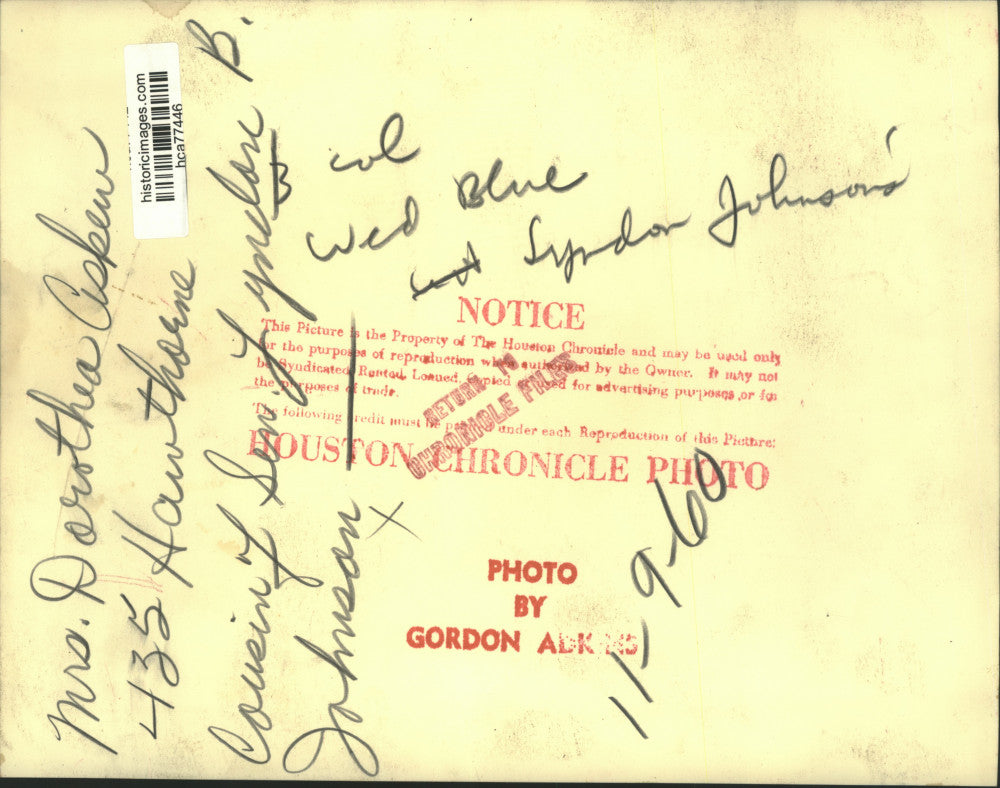 historicimages.com
hca77446
Mrs. Dorothea Askew
435 Hawthorne
Cousin of Sen. Lyndon B.
Johnson
X
B col
Wed Blue
Lyndon Johnson's
NOTICE
This Picture is the Property of The Houston Chronicle and may be used only
for the purposes of reproduction when authorized by the Owner. It may not
be Syndicated, Rented, Loaned, Copied or used for advertising purposes or for
the purposes of trade.
The following credit must be printed under each Reproduction of this Picture:
HOUSTON CHRONICLE PHOTO
RETURN TO
CHRONICLE FILES
11-9-60
PHOTO
BY
GORDON ADKINS